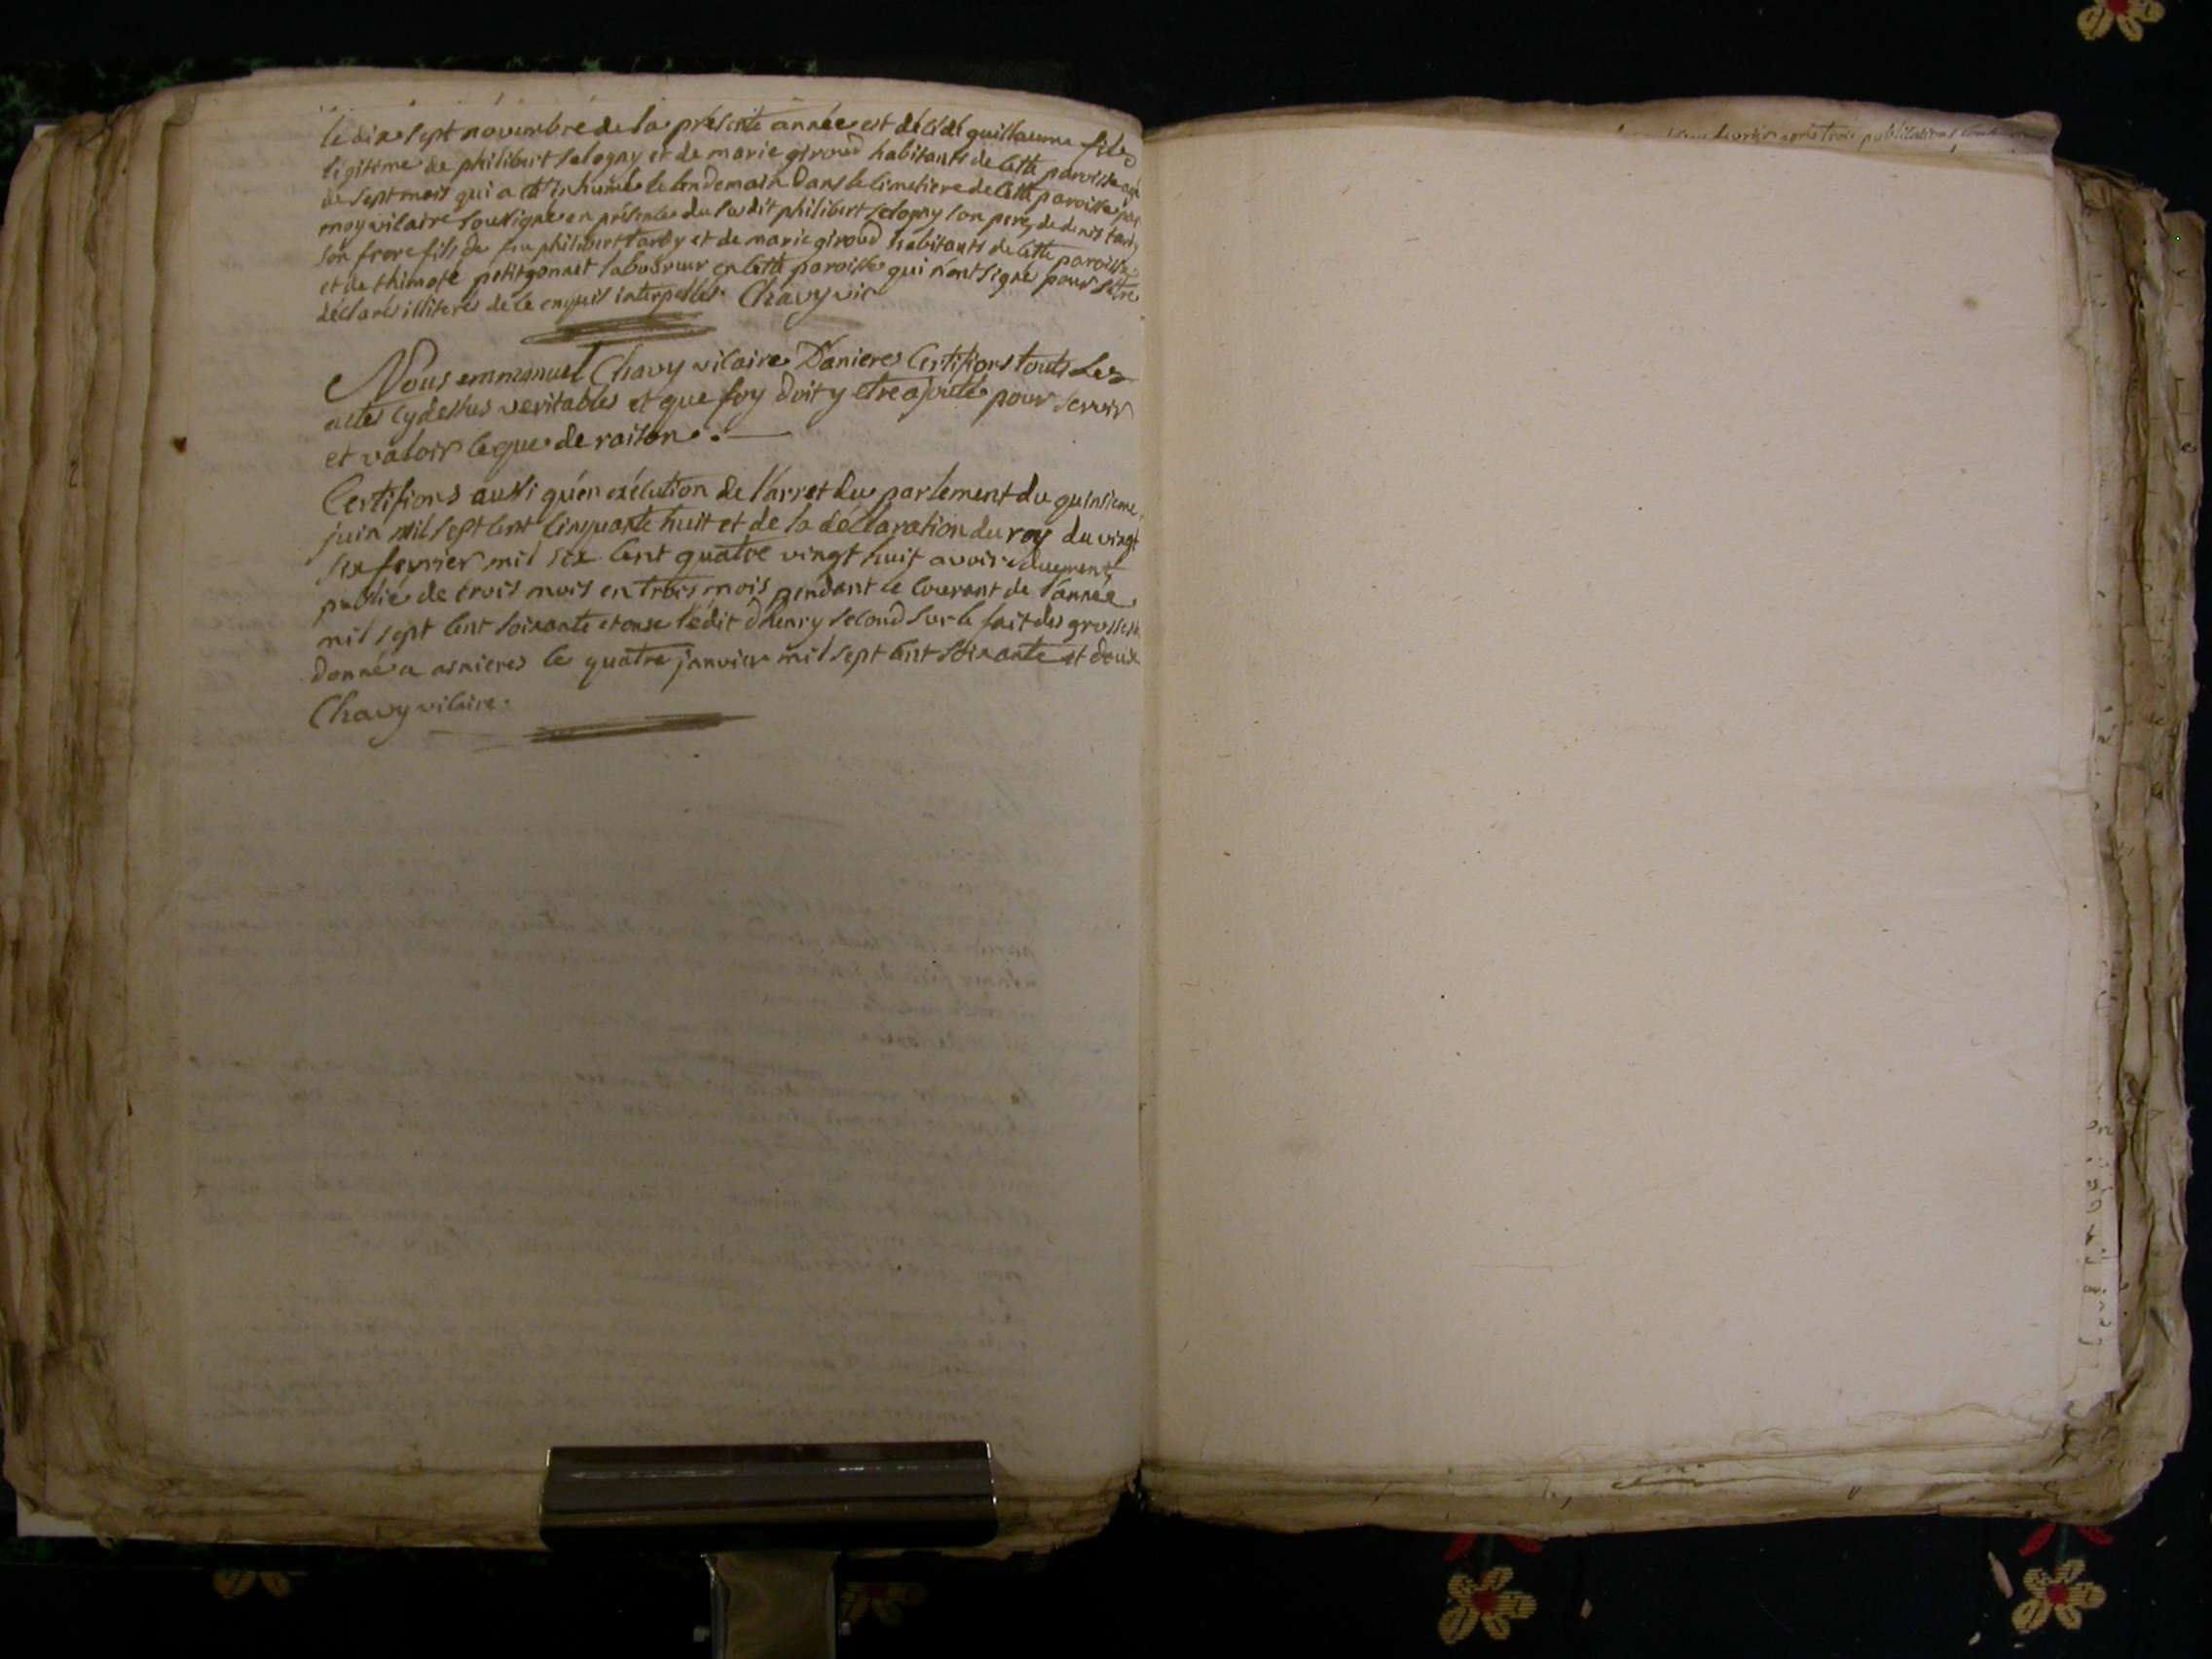 le dix sept novembre de la présente année est décédé guillaume fils
légitime de philibert sologny et de marie giroud habitants de cette paroisse agé
de sept mois qui a été inhumé le lendemain dans le cimetiere de cette paroisse par
moy vicaire soussigné en présence du susdit philibert sologny son pere, de denis tardy
son frere fils de feu philibert tardy et de marie giroud habitants de cette paroisse
et de thimoté petitgonnet laboureur en cette paroisse qui n'ont signé pour s'etre
déclarés illiterés de ce enquis interpellés. Chavy vic
Nous emmanuel Chavy vicaire Danieres Certifions touts Les
actes cy dessus veritables et que foy doit y etre ajoutée pour servir
et valoir ce que de raison. —
Certifions aussi qu'en exécution de l'arret du parlement du quinsieme
juin mil sept cent cinquante huit et de la déclaration du roy du vingt
six fevrier mil six cent quatre vingt huit avoir duement
publié de trois mois en trois mois pendant le courant de l'année
mil sept cent soixante et onse l'édit d'henry second sur le fait des grossesses
donné a asnieres le quatre janvier mil sept cent soixante et douse
Chavy vicaire.
trois publications